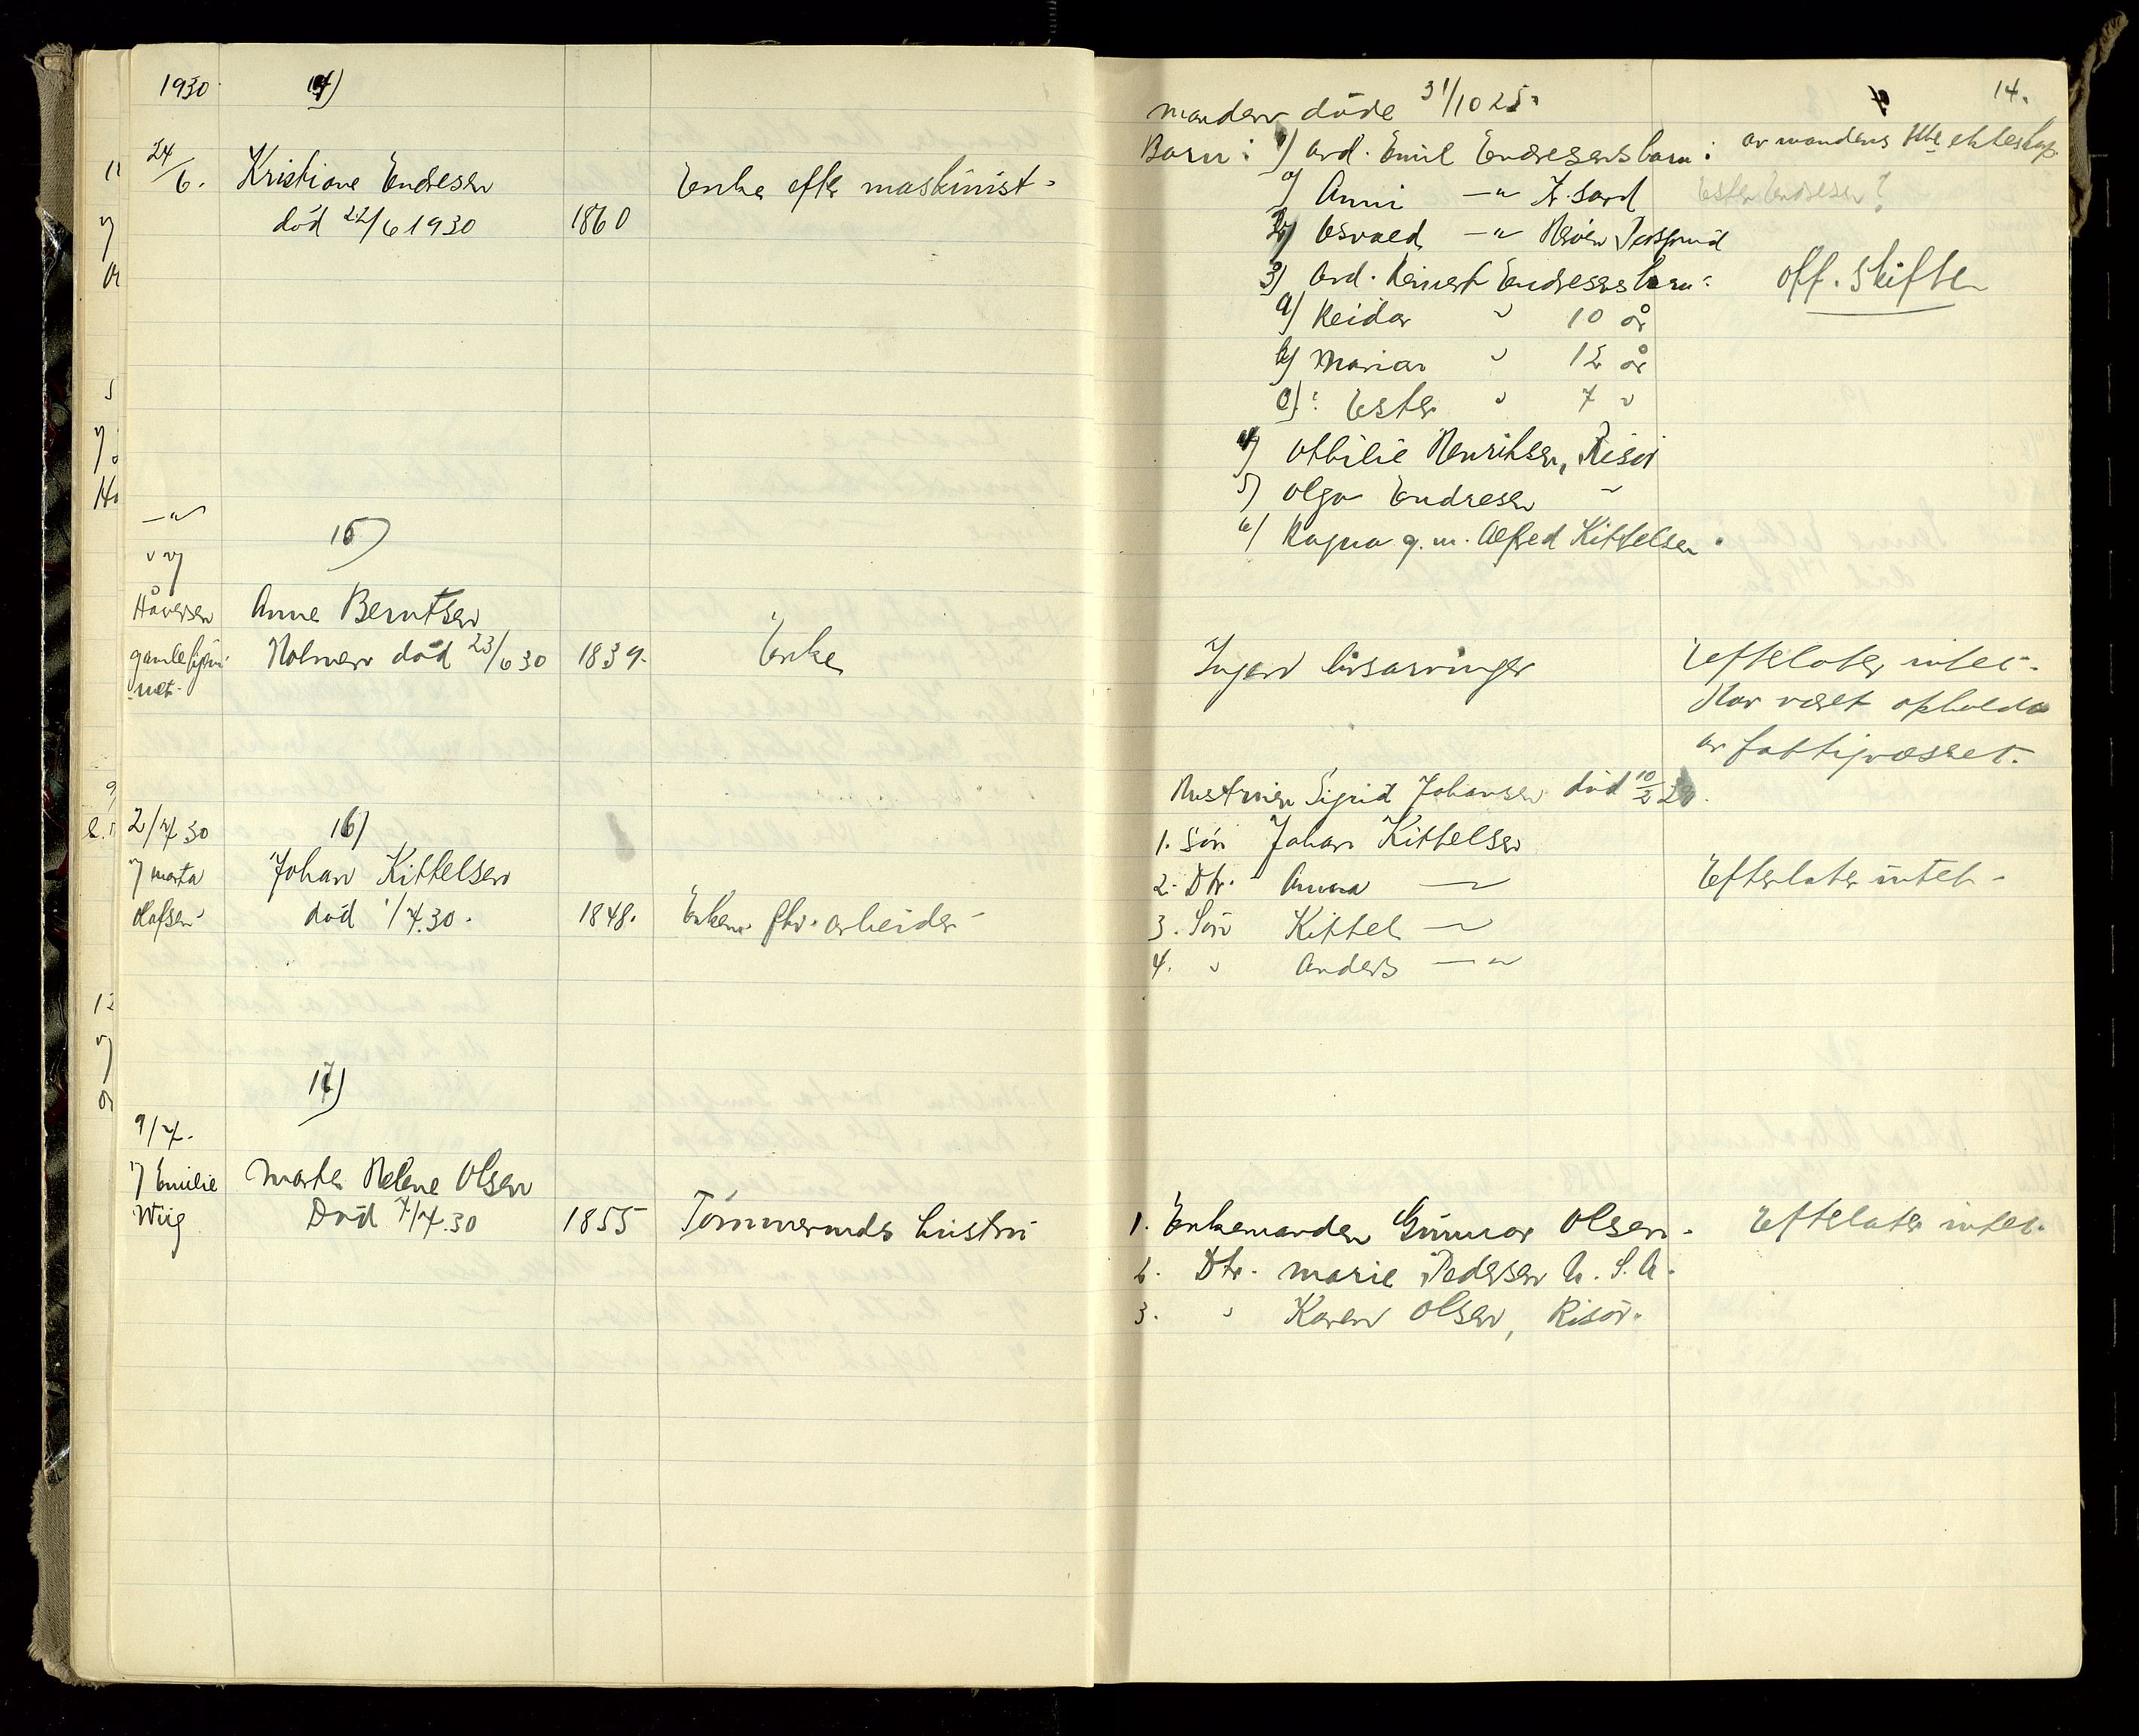 1930
14)
24/6.
Kristiane Endresen
død 22/6 1930
1860
Enke efter maskinist.
14.
manden døde 31/10 25.
Barn: 1) avd. Emil Endresens barn: av mandens 1ste ekteskap
a) Anni —"—
Ester Endresen?
b) Osvald —"—
3) avd. Reinert Endresens barn:
off. skifte
a) Reidar " 10 år
b) Marian " 12 år
c): Ester " 7 "
4) Othilie Henriksen, Risør
5) Olga Endresen "
6) Ragna g. m. Alfred Kittelsen.
—"—
15)
v/
Håversen
gamlehjem
met.
Anne Berntsen
Holmen død 23/6 30
1839.
Enke
Ingen livsarvinger
Efterlater intet.
Har været opholdt
av fattigvæsenet.
2/7 30
16)
v/ Marta
Olafsen
Johan Kittelsen
død 1/7.30.
1848.
Enkem. fhv. arbeider
Hustruen Sigrid Johansen død 10/2 28.
1. Søn Johan Kittelsen
2. Dtr. Anna —
3. Søn Kittel —
4. " Anders —"—
Efterlater intet.
17)
9/7.
v/ Emilie
Wiig
Marte Helene Olsen
Død 7/7.30
1855
Tømmermds hustru
1. Enkemanden Gunnar Olsen.
Efterlater intet.
2. Dtr. Marie Pedersen U. S. A.
3. " Karen Olsen, Risør.